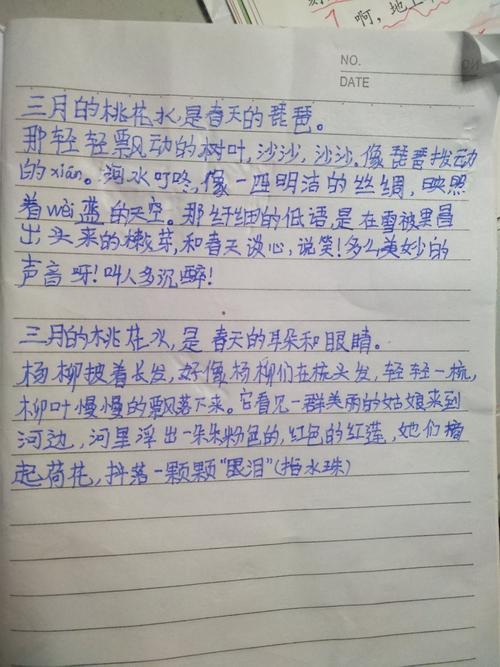 啊，地上
NO.
DATE
三月的桃花水是春天的琵琶。
那轻轻飘动的树叶，沙沙，沙沙，像琵琶拨动
的xián。河水叮咚，像一匹明洁的丝绸，映照
着wèi蓝的天空。那纤细的低语，是在雪被里冒
出头来的嫩芽，和春天谈心，说笑！多么美妙的
声音呀！叫人多沉醉！
三月的桃花水，是春天的耳朵和眼睛。
杨柳披着长发，好像杨柳们在梳头发，轻轻一梳，
柳叶慢慢的飘落下来。它看见一群美丽的姑娘来到
河边，河里浮出一朵朵粉色的，红色的红莲，她们摘
起荷花，抖落一颗颗“眼泪”（指水珠）